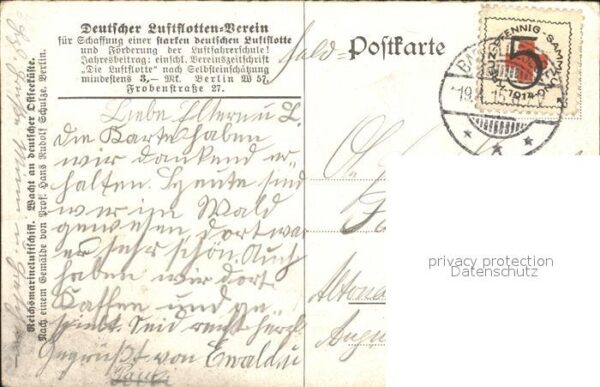 Deutscher Luftflotten-Verein
für Schaffung einer starken deutschen Luftflotte
und Förderung der Luftfahrerschule!
Jahresbeitrag: einschl. Vereinszeitschrift
"Die Luftflotte" nach Selbsteinschätzung
mindestens 3,— Mk. Berlin W 57,
Frobenstraße 27.
Reichsmarineluftschiff. Wacht an deutscher Ostseeküste.
Nach einem Gemälde von Prof. Hans Rudolf Schulze, Berlin.
Feld-Postkarte
5
PFENNIG
1914
Liebe Eltern u. L.
die Karte haben
wir dankend er-
halten. Heute sind
wir im Wald
gewesen dort war
er sehr schön. Auch
haben wir dort
Kaffen und ge-
spielt. Seid recht herzl.
Gegrüßt von Ewald u
Paula
Altona
privacy protection
Datenschutz